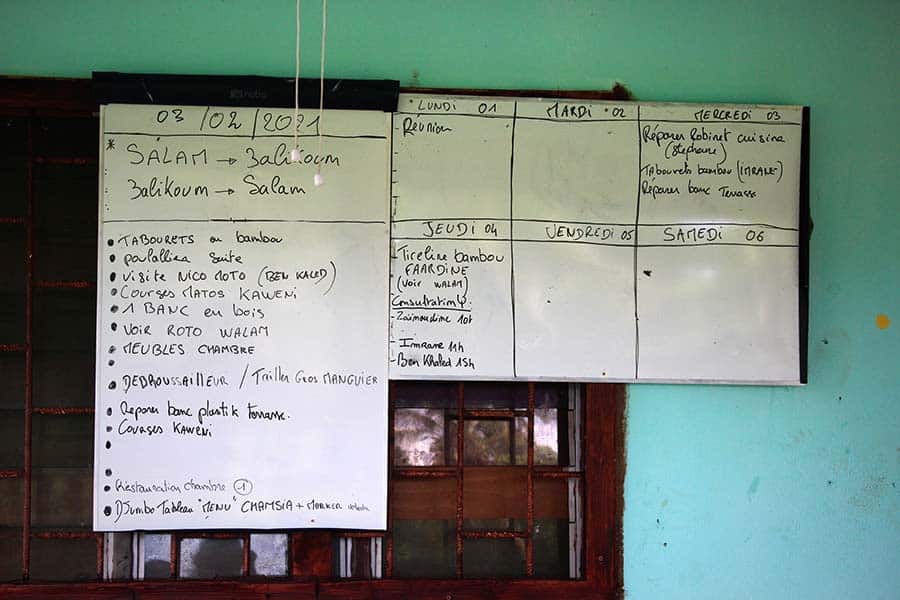 nobo
03/02/2021
* SALAM → Zalikoum
Zalikoum → Salam
• TABOURETS en bambou
• poulailler suite
• Visite NICO MOTO (BEN KALED)
• COURSES MATOS KAWENI
• 1 BANC en bois
• VOIR ROTO WALAM
• MEUBLES CHAMBRE
•
• DEDROUSSAILLEUR / Tailler Gros MANGUIER
• Reparer banc plastik terrasse.
• Courses KAWENI
•
•
• Restauration chambre 1
• DJumbo Tableau "MENU" CHAMSIA + MARKER
LUNDI 01
- Réunion
MARDI 02
MERCREDI 03
Réparer Robinet cuisine
(Stephane)
Tabourets bambou (IMRANE)
Réparer banc Terrasse
JEUDI 04
- Tireline bambou
FAARDINE
(voir WALAM)
Consultation Ψ
- Zaïnoudine 10h
- Imrane 11h
- Ben Khaled 15h
VENDREDI 05
SAMEDI 06